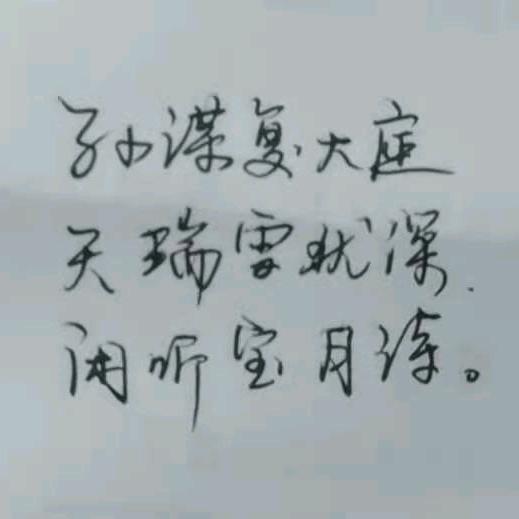 孙谋复大庭
天瑞雪犹深
闲听宝月诗。